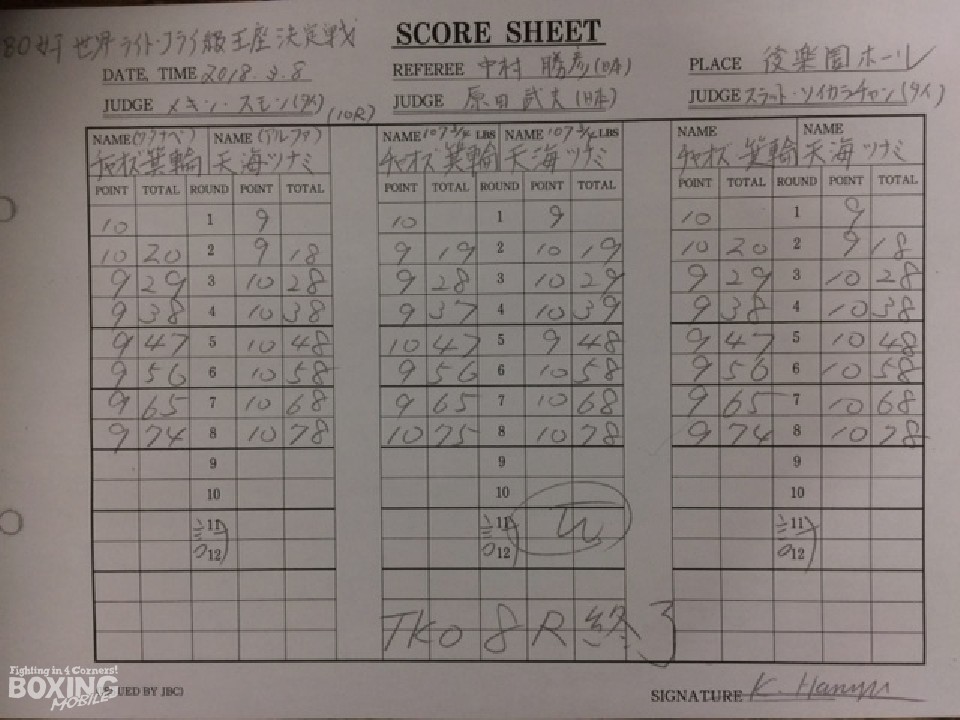 SCORE SHEET
世界ライト・フライ級王座決定戦
DATE, TIME 2018.3.8
REFEREE 中村 勝彦(日本)
PLACE 後楽園ホール
JUDGE (タイ) (10R)
JUDGE 原田 武夫(日本)
JUDGE スラット・ソイカラチャン(タイ)
NAME NAME NAME 107 3/4 LBS NAME 107 3/4 LBS NAME NAME
チャオズ箕輪 天海ツナミ チャオズ箕輪 天海ツナミ チャオズ箕輪 天海ツナミ
POINT TOTAL ROUND POINT TOTAL POINT TOTAL ROUND POINT TOTAL POINT TOTAL ROUND POINT TOTAL
10 1 9 10 1 9 10 1 9
10 20 2 9 18 9 19 2 10 19 10 20 2 9 18
9 29 3 10 28 9 28 3 10 29 9 29 3 10 28
9 38 4 10 38 9 37 4 10 39 9 38 4 10 38
9 47 5 10 48 10 47 5 9 48 9 47 5 10 48
9 56 6 10 58 9 56 6 10 58 9 56 6 10 58
9 65 7 10 68 9 65 7 10 68 9 65 7 10 68
9 74 8 10 78 10 75 8 10 78 9 74 8 10 78
9 9 9
10 10 10
11 11 11
12 12 12
TKO 8R 終了
Fighting in 4 Corners!
BOXING
MOBILES
ISSUED BY JBC
SIGNATURE K.